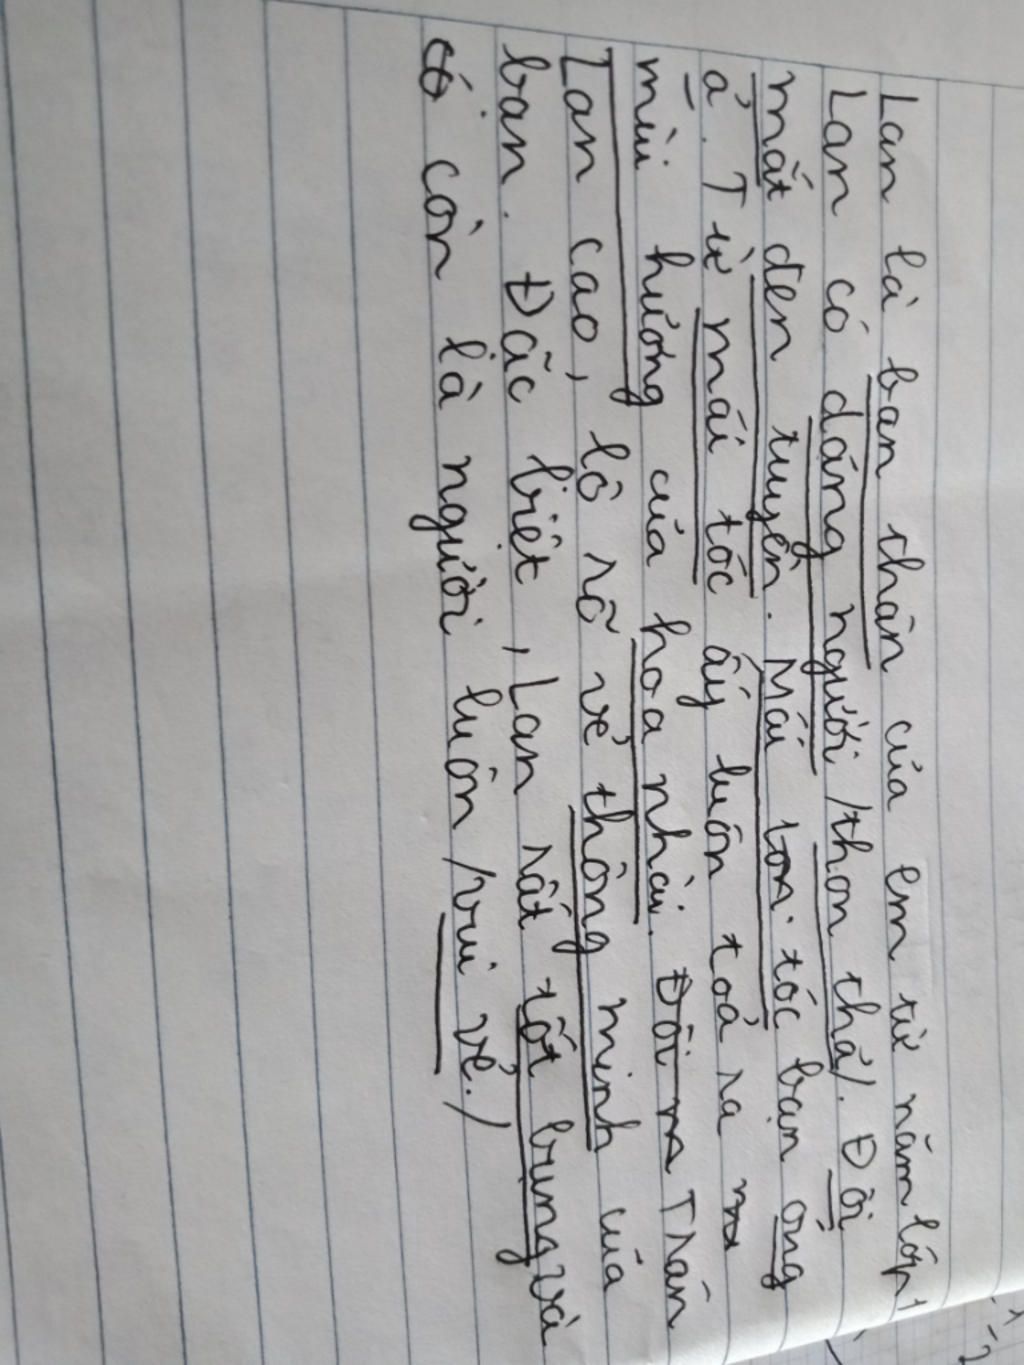 Lan là bạn thân của em từ năm lớp 1
Lan có dáng người /thon thả/. Đôi
mắt đen tuyền. Mái tóc bạn óng
ả. Từ mái tóc ấy luôn toả ra
mùi hương của hoa nhài. Trán
Lan cao, lộ rõ vẻ thông minh của
bạn. Đặc biệt, Lan rất tốt bụng và
cô còn là người luôn /vui vẻ./